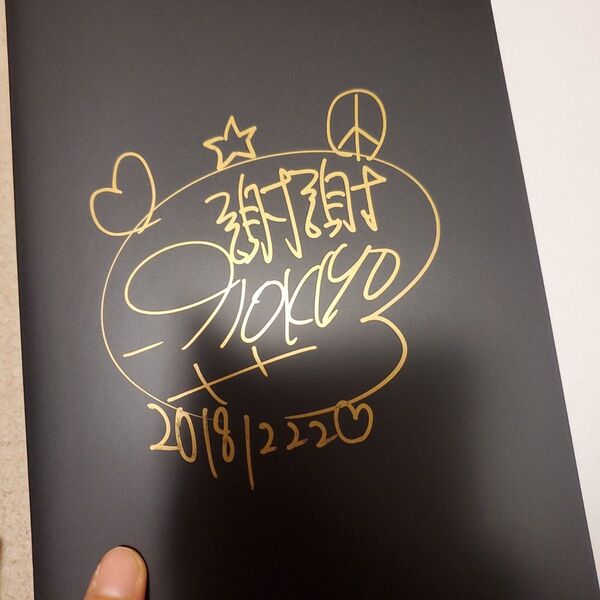 謝謝
TOKYO
2018/222♡